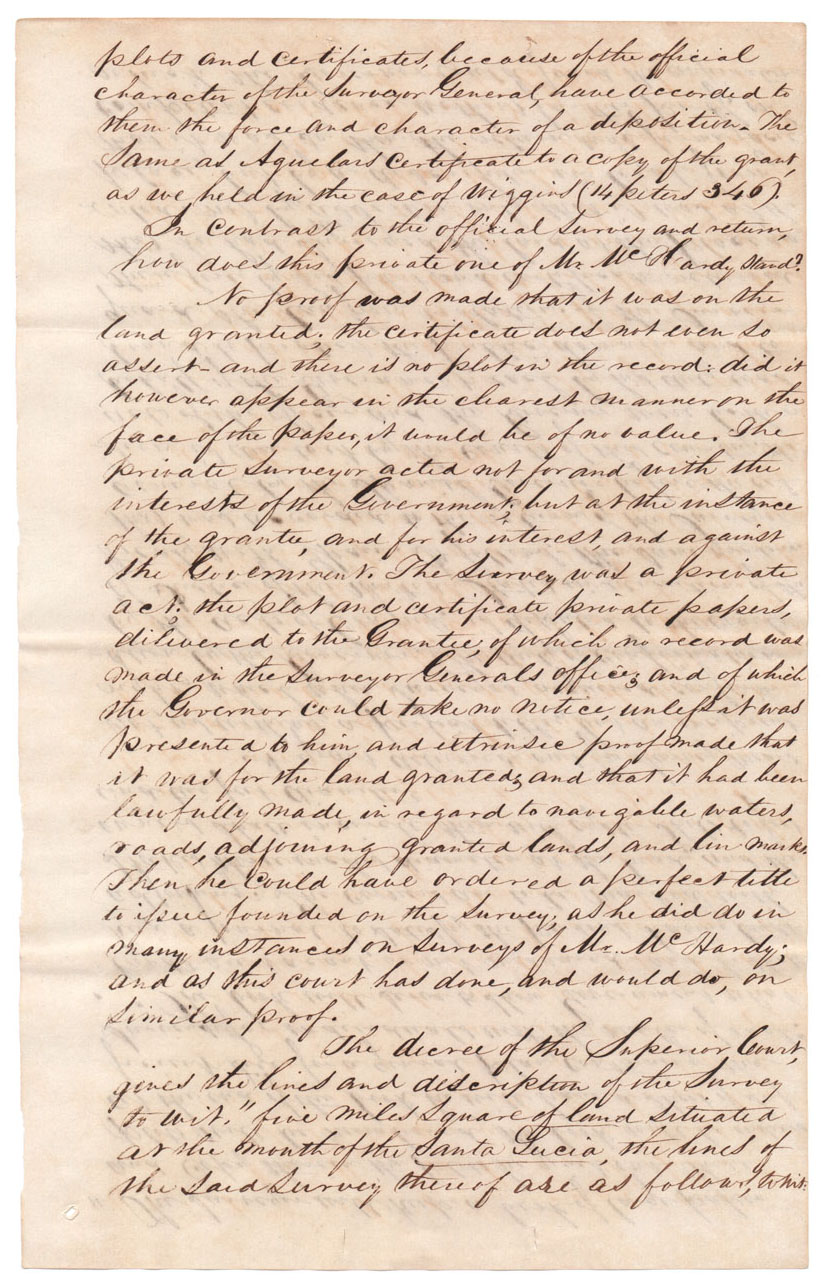 plots and certificates, because of the official
character of the Surveyor General, have accorded to
them the force and character of a deposition. The
same as Aguelars certificate to a copy of the grant,
as we held in the case of Wiggins (14 peters 346).
In contrast to the official Survey and return,
how does this private one of Mr. McHardy stand?
No proof was made that it was on the
land granted; the certificate does not even so
assert - and there is no plot in the record: did it
however appear in the clearest manner on the
face of the paper, it would be of no value. The
private Surveyor acted not for and with the
interests of the Government; but at the instance
of the grantee, and for his interest, and against
the Government. The Survey was a private
act; the plot and certificate private papers,
dilivered to the Grantee, of which no record was
made in the Surveyor Generals office; and of which
the Governor could take no notice, unless it was
presented to him, and extrinsic proof made that
it was for the land granted; and that it had been
lawfully made, in regard to navigable waters,
roads, adjoining granted lands, and lin marks.
Then he could have ordered a perfect title
to issue founded on the Survey; as he did do in
many instances on Surveys of Mr. McHardy;
and as this court has done, and would do, on
similar proof.
The decree of the Superior Court,
gives the lines and discription of the Survey
to wit, "five miles Square of land situated
at the mouth of the Santa Lucia, the lines of
the said Survey thereof are as follows, to wit: